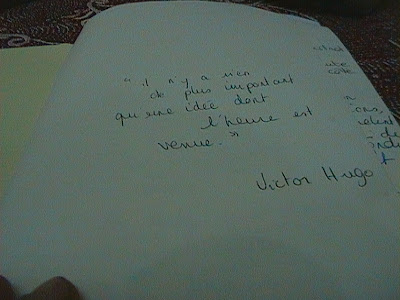 " il n'y a rien
de plus important
qu'une idée dont
l'heure est
venue. "
Victor Hugo